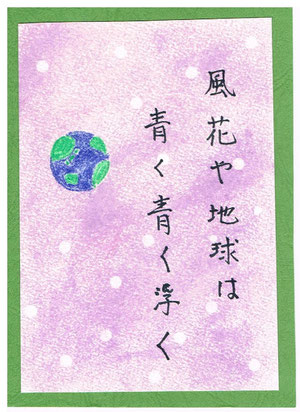 風花や地球は
青く青く浮く